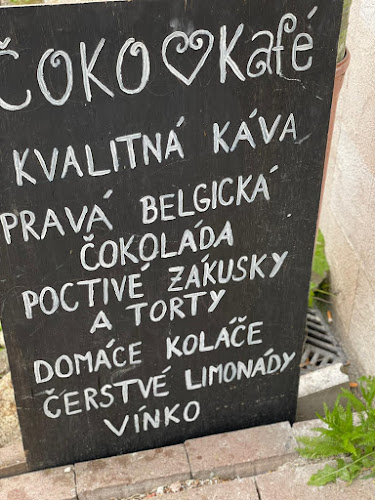 ČOKO♡Kafé
KVALITNÁ KÁVA
PRAVÁ BELGICKÁ
ČOKOLÁDA
POCTIVÉ ZÁKUSKY
A TORTY
DOMÁCE KOLÁČE
ČERSTVÉ LIMONÁDY
VÍNKO